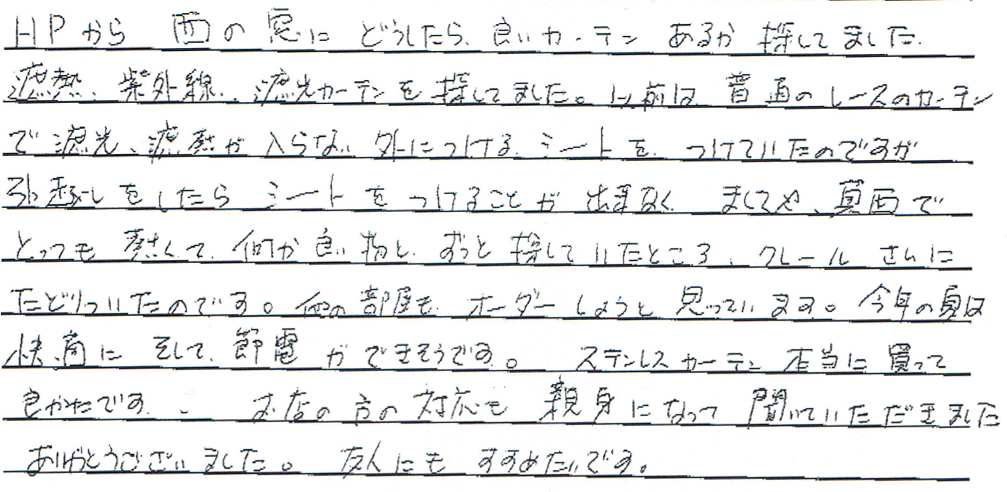 HPから 西の窓に どうしたら、良いカーテン あるか 探してました。
遮熱、紫外線、遮光カーテンを探してました。以前は 普通のレースのカーテン
で遮光、遮熱が入らない 外につける シートを つけていたのですが
引越しをしたら シートをつけることが 出来なく ましてや、真西で
とっても 熱くて、何か良い物と、ずっと探していたところ、クレールさんに
たどりついたのです。他の部屋も オーダーしようと 思っています。今年の夏は
快適に そして、節電 ができそうです。 ステンレスカーテン 本当に買って
良かったです。 お店の方の対応も 親身になって 聞いていただきました
ありがとうございました。 友人にも すすめたいです。